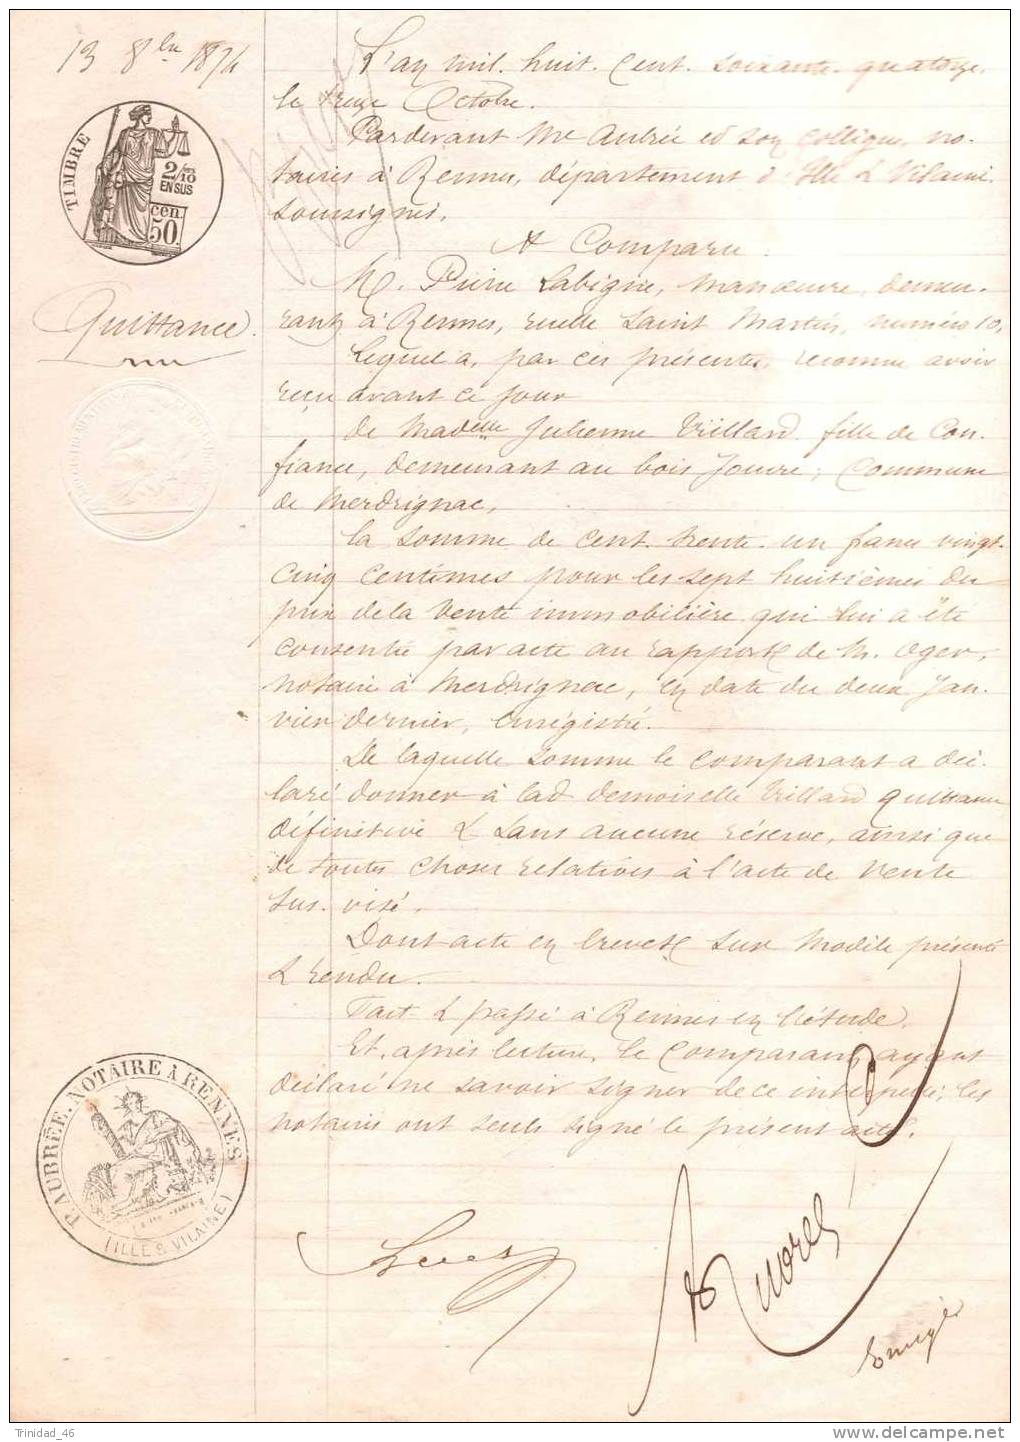 13 8bre 1874
L'an mil. huit. Cent. soixante. quatorze.
le treize Octobre.
Pardevant Me Aubrée et son collègue, no-
taires à Rennes, département d'Ille & Vilaine
soussignés.
TIMBRE
2/10 EN SUS
50 cen.
A Comparu
M. Pierre Labigne, manœuvre, demeu-
rant à Rennes, ruelle Saint Martin, numéro 10,
Quittance.
Lequel a, par ces présentes, reconnu avoir
reçu avant ce jour
de Madelle Julienne Vrillard fille de Con-
fiance, demeurant au bois Jouvre, Commune
de Merdrignac,
la somme de cent. trente. un francs vingt-
cinq centimes pour les sept huitièmes du
prix de la vente immobilière qui lui a été
consentie par acte au rapport de M. Oger,
notaire à Merdrignac, en date du deux Jan-
vier dernier, enregistré.
De laquelle somme le comparant a dé-
claré donner à lad demoiselle Vrillard quittance
définitive & sans aucune réserve, ainsi que
de toutes choses relatives à l'acte de vente
sus. visé.
Dont acte en brevet sur modèle présenté
& rendu.
Fait & passé à Rennes en l'étude.
Et, après lecture, le comparant, ayant
déclaré ne savoir signer de ce interpellé; les
notaires ont seuls signé le présent acte.
P. AUBRÉE. NOTAIRE À RENNES
(ILLE & VILAINE)
Trinidad_46
delcampe.net